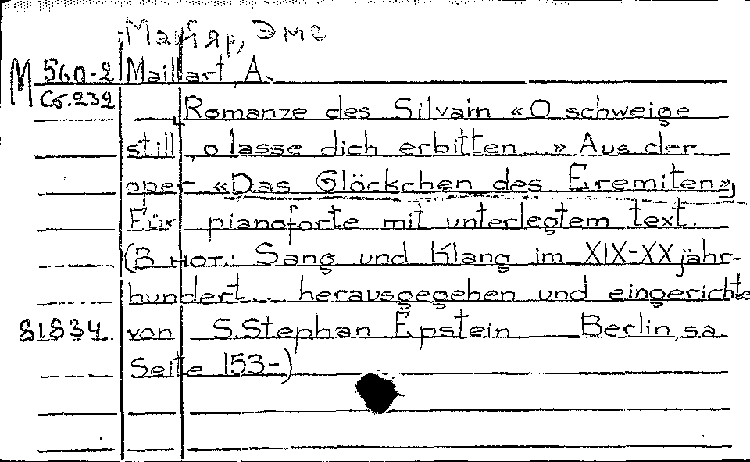 Майяр, Эмс
М 560-2 Maillart, A.
Ст.232 Romanze des Silvain «O schweige
still, o lasse dich erbitten...» Aus der
oper «Das Glöckchen des Eremiten»
Für pianoforte mit unterlegtem text.
(В нот.: Sang und Klang im XIX-XX jahr-
hundert... herausgegeben und eingerichte
81834 von S. Stephan Epstein Berlin, s.a.
Seite 153-)